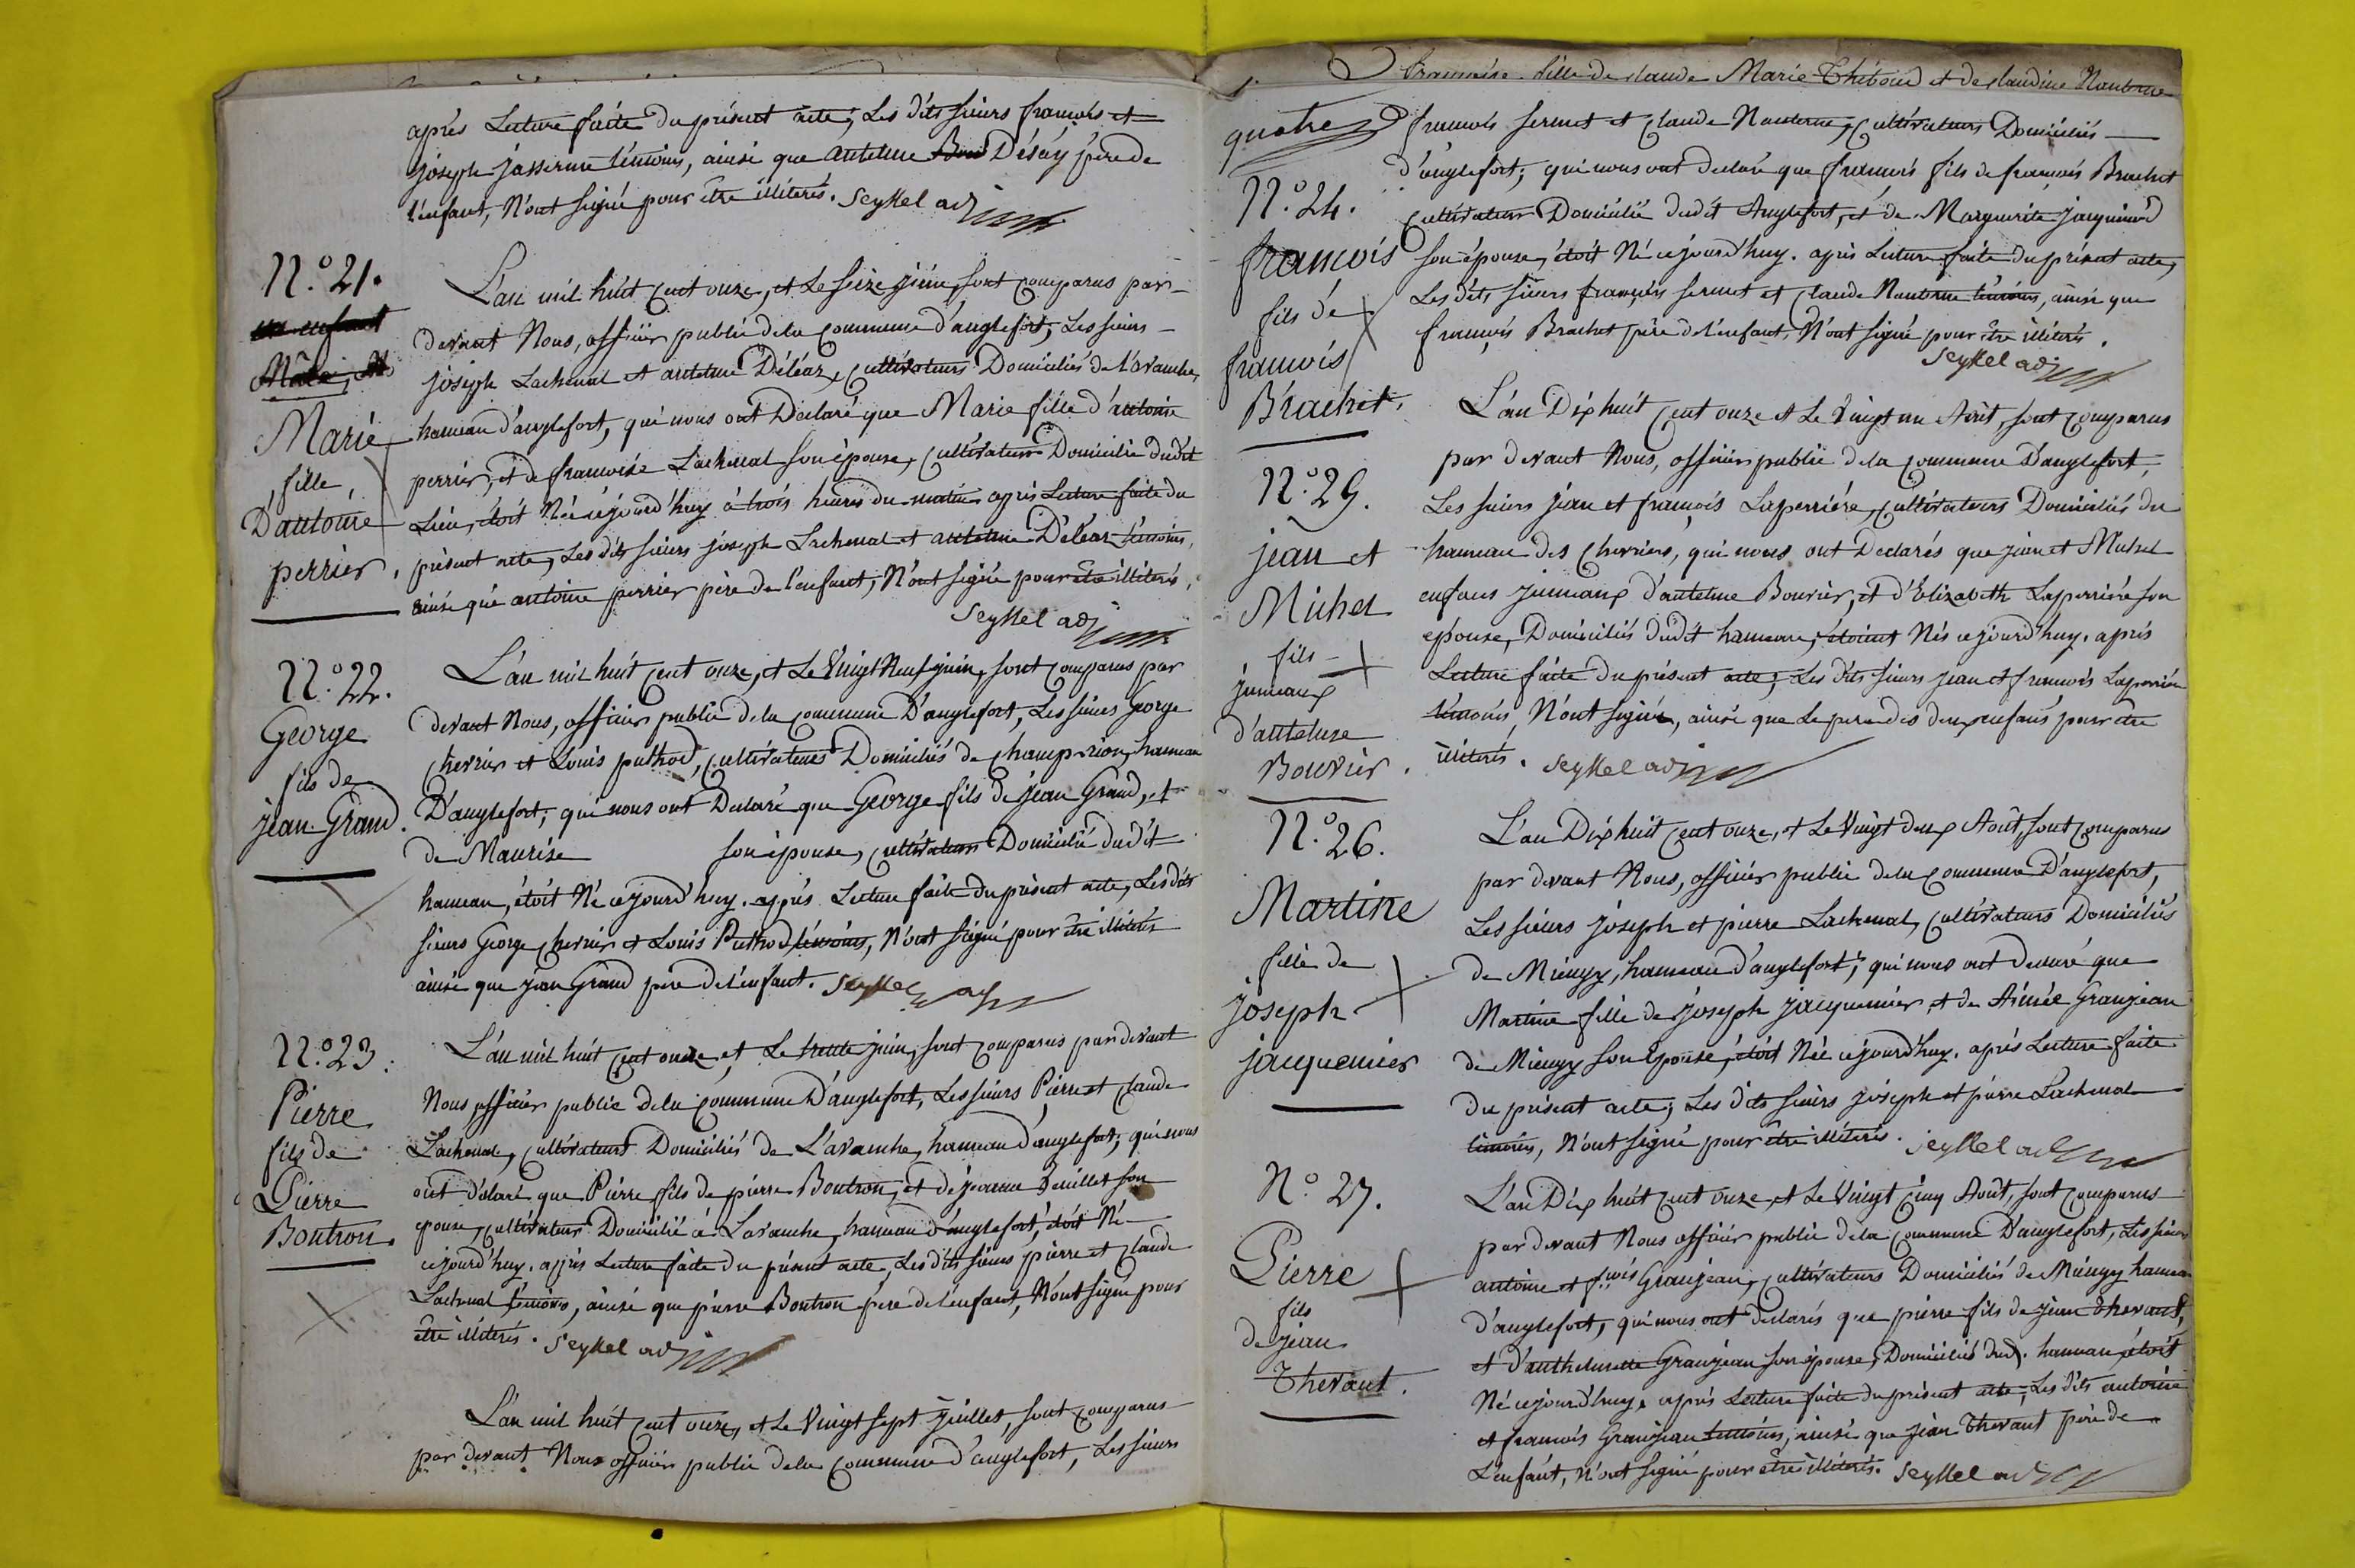 après Lecture faite du présent acte, Les dits sieurs francois et
joseph jasserme témoins, ainsi que antelme Désay père de
l'enfant, N'ont signé pour être illiterés. Seyssel adj
N.o 21.
un enfant
Mâle,
Marie
fille
D'antoine
perrier.
L'an mil huit cent onze, et Le seize juin, sont comparus par
devant Nous, officier public de la commune d'anglefort, Les sieurs
joseph Lachenal et antelme Déléaz, cultivateurs Domiciliés de Lavanche,
hameau d'anglefort, qui nous ont Declaré que Marie fille d'antoine
perrier, et de francoise Lachenal son épouse, cultivateur Domicilié dudit
Lieu, étoit Née cejourd'huy à trois heures du matin après Lecture faite du
présent acte, Les dits sieurs joseph Lachenal et antelme Déléaz témoins,
ainsi que antoine perrier père de l'enfant, N'ont signé pour être illiterés,
Seyssel adj
N.o 22.
George
fils de
jean Grand.
L'an mil huit cent onze, et Le Vingt Neuf juin, sont comparus par
devant Nous, officier public de la commune D'anglefort, Les sieurs George
cherrier et Louis puthod, cultivateurs Domiciliés de champ-rion, hameau
D'anglefort, qui nous ont Declaré que George fils de jean Grand, et
de Maurise son épouse, cultivateur Domicilié dudit
hameau, étoit Né cejourd'huy. après Lecture faite du présent acte, Les dits
sieurs George cherrier et Louis Puthod témoins, N'ont signé pour être illiterés
ainsi que jean Grand père de l'enfant. Seyssel adj
N.o 23.
Pierre
fils de
Pierre
Boutron.
L'an mil huit cent onze, et Le trente juin, sont comparus par devant
Nous officier public de la commune D'anglefort, Les sieurs Pierre et claude
Lachenal, cultivateurs Domiciliés de L'avanche, hameau d'anglefort, qui nous
ont déclaré que Pierre fils de pierre Boutron, et de jeanne son
epouse, cultivateur Domicilié à Lavanche, hameau d'anglefort, étoit Né
cejourd'huy. après Lecture faite du présent acte, Les dits sieurs pierre et claude
Lachenal témoins, ainsi que pierre Boutron père de l'enfant, N'ont signé pour
être illiterés. Seyssel adj
L'an mil huit cent onze, et Le Vingt sept juillet, sont comparus
par devant Nous officier public de la commune d'anglefort, Les sieurs
francoise fille de claude Marie Thiboud et de claudine Nanterne
quatre
francois sermet et claude Nanterne, cultivateurs Domiciliés
d'anglefort; qui nous ont declaré que francois fils de francois Brachet
cultivateur Domicilié dudit Anglefort, et de Marguerite jacquinod
son épouse, étoit Né cejourd'huy. après Lecture faite du présent acte,
Les dits sieurs francois sermet et claude Nanterne témoins, ainsi que
francois Brachet père de l'enfant, N'ont signé pour être illiterés.
Seyssel adj
N.o 24.
francois
fils de
francois
Brachet.
L'an Dix huit cent onze et Le Vingt un Aoüt, sont comparus
par devant Nous, officier public de la commune D'anglefort,
Les sieurs jean et francois Laperriére, cultivateurs Domiciliés du
hameau des cherriers, qui nous ont Declarés que jean et Michel
enfans jumeaux d'antelme Bouvier, et d'Elizabeth Laperriére son
epouse, Domiciliés dudit hameau, étoient Nés cejourd'huy. après
Lecture faite du présent acte, Les dits sieurs jean et francois Laperriére
témoins, N'ont signé, ainsi que Le pere des deux enfans pour être
illiterés. Seyssel adj
N.o 25.
jean et
Michel
fils
jumeaux
d'antelme
Bouvier.
N.o 26.
Martine
fille de
joseph
jacquemier
L'an Dix huit cent onze, et Le Vingt deux Aoüt, sont comparus
par devant Nous, officier public de la commune D'anglefort,
Les sieurs joseph et pierre Lachenal, cultivateurs Domiciliés
de Mieugy, hameau d'anglefort; qui nous ont declaré que
Martine fille de joseph jacquemier et de Aimée Granjean
de Mieugy son épouse, étoit Née cejourd'huy. après Lecture faite
du présent acte; Les dits sieurs joseph et pierre Lachenal
témoins, N'ont signé pour être illiterés. Seyssel adj
N.o 27.
Pierre
fils
de jean
Thevant.
L'an Dix huit cent onze, et Le Vingt cinq Aoüt, sont comparus
par devant Nous officier public de la commune D'anglefort, Les sieurs
antoine et f.cois Granjean, cultivateurs Domiciliés de Mieugy hameau
d'anglefort, qui nous ont declarés que pierre fils de jean Thevant,
et d'anthelmette Granjean son épouse, Domiciliés dud. hameau, étoit
Né cejourd'huy. après Lecture faite du présent acte, Les dits antoine
et francois Granjean témoins, ainsi que jean Thevant père de
L'enfant, N'ont signé pour être illiterés. Seyssel adj